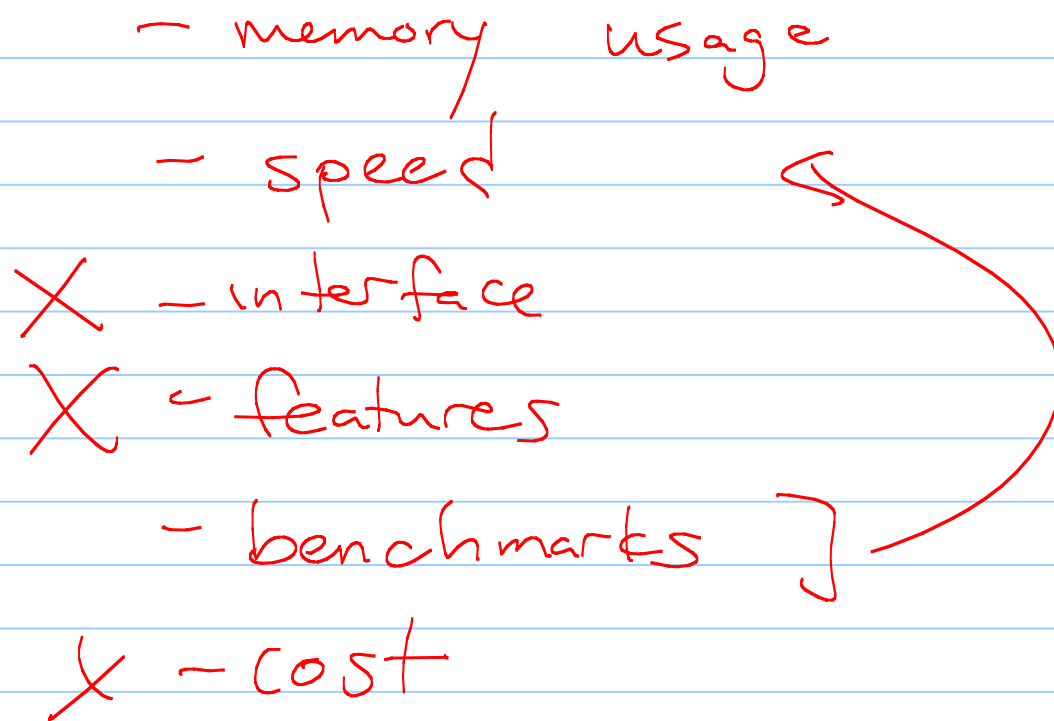 - memory usage
- speed
X - interface
X - features
- benchmarks ]
X - cost